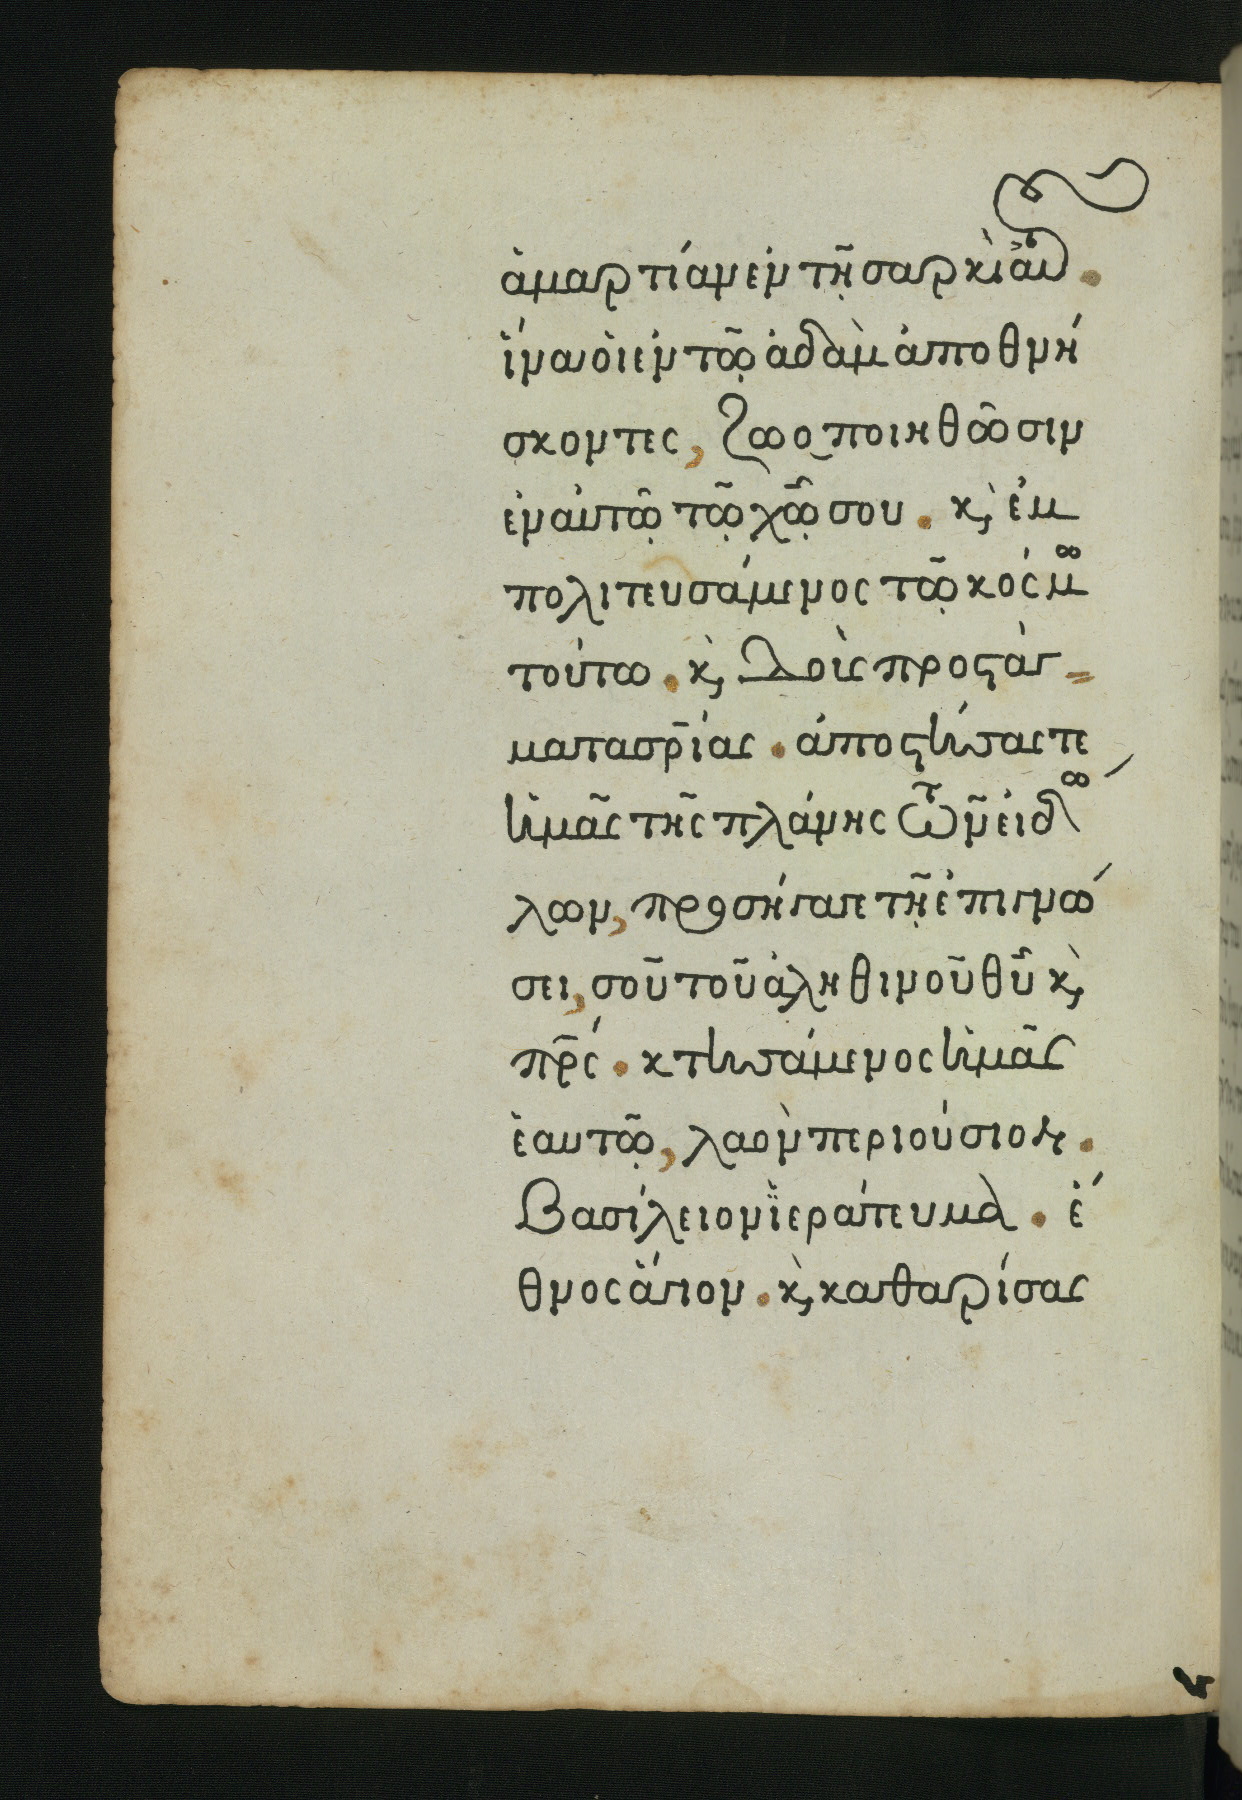 ἁμαρτίαν ἐν τῇ σαρκὶ αὐτοῦ.
ἵνα οἱ ἐν τῷ ἀδὰμ ἀποθνή
σκοντες, ζωοποιηθῶσιν
ἐν αὐτῷ τῷ χῷ σου. κ, ἐμ
πολιτευσάμενος τῷ κόσμω
τούτω. κ, δοὺς προστάγ=
ματα σρίας. ἀποστήσας τε
ἡμᾶς τῆς πλάνης τῶν εἰδώ
λων, προσήγαγε τῇ ἐπιγνώ
σει, σοῦ τοῦ ἀληθινοῦ θῦ κ,
πρς. κτησάμενος ἡμᾶς
ἑαυτῷ, λαὸν περιούσιον.
Βασίλειον ἱεράτευμα. ἔ
θνος ἅγιον. κ, καθαρίσας